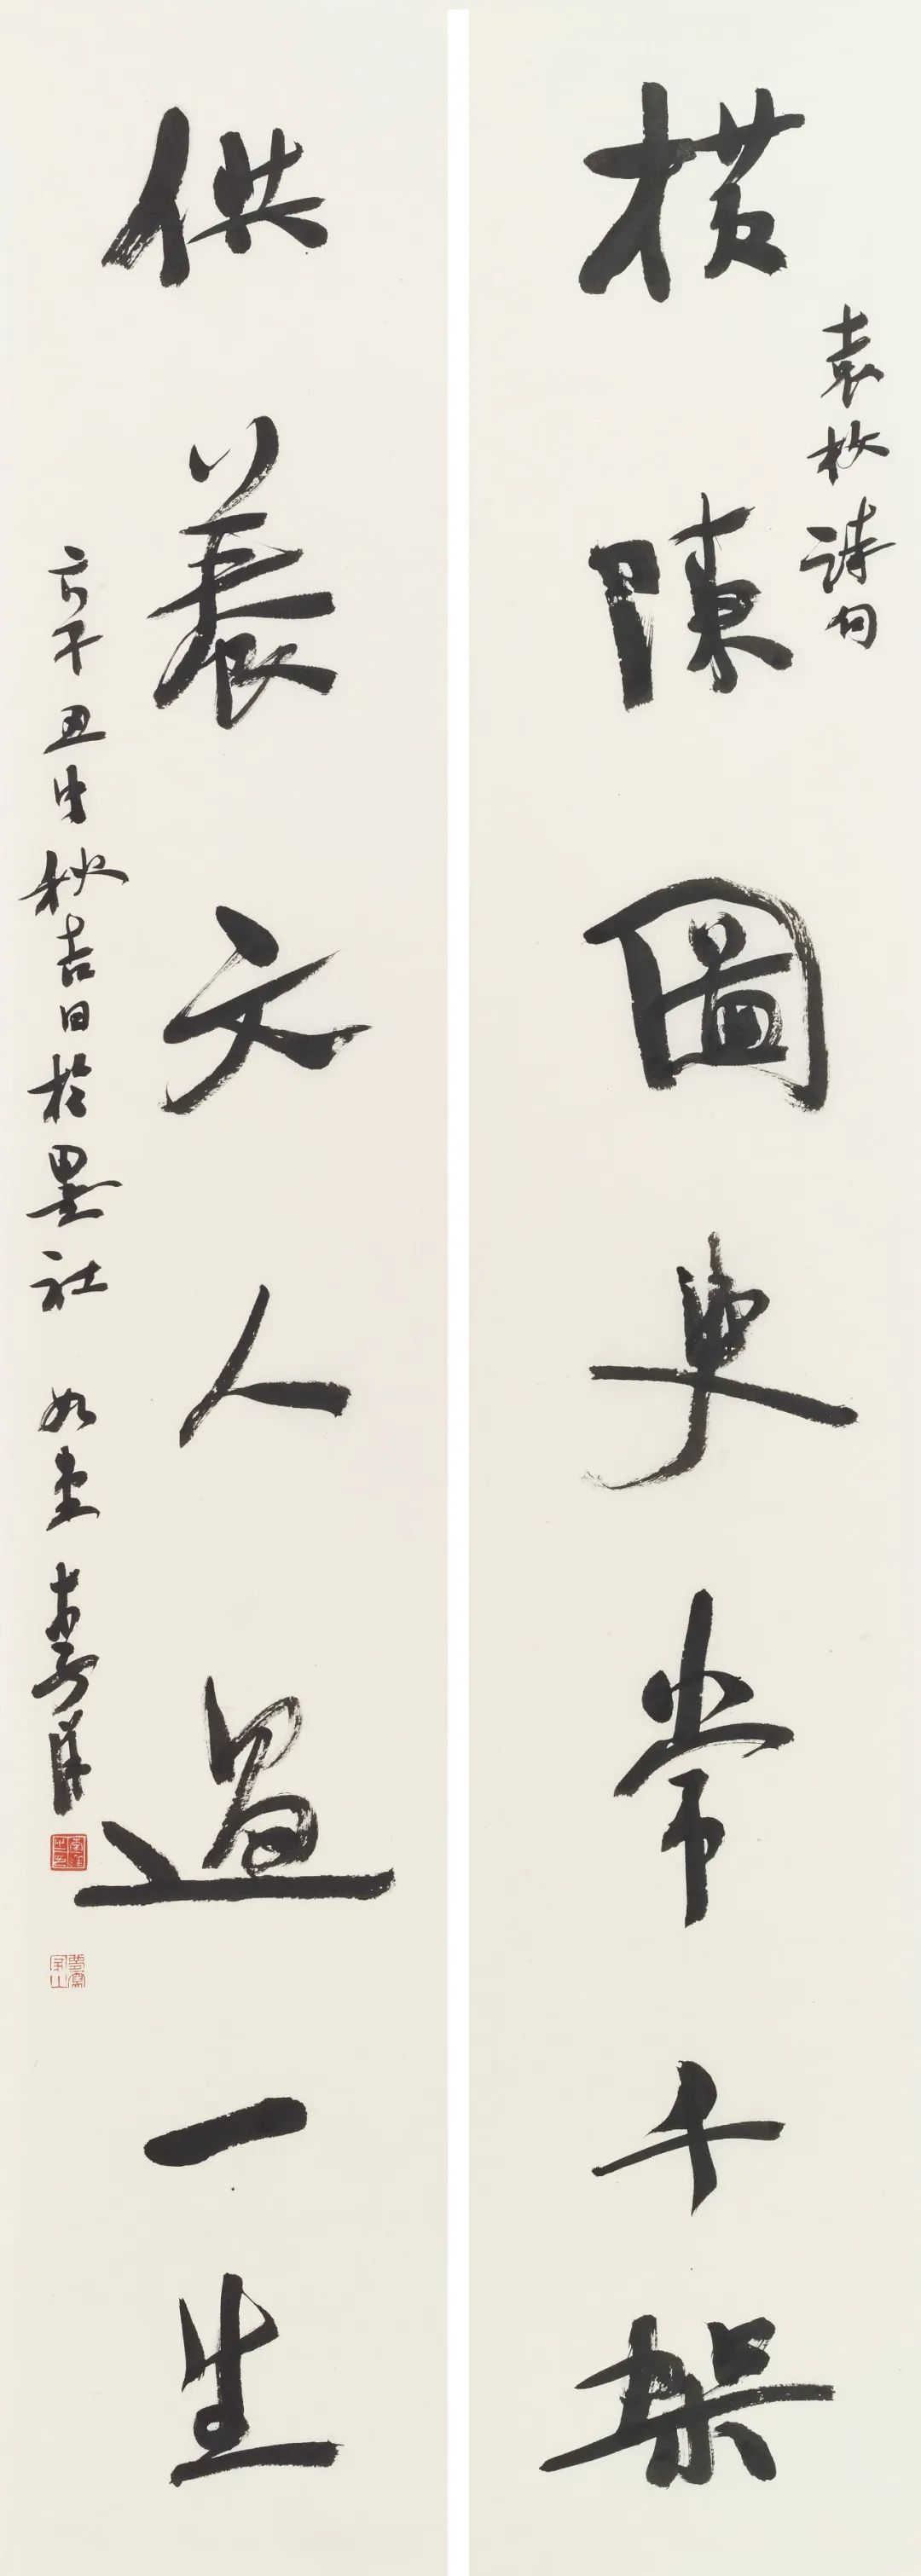 橫陳圖史常千架
袁枚詩句
供養文人過一生
辛丑中秋吉日於墨社